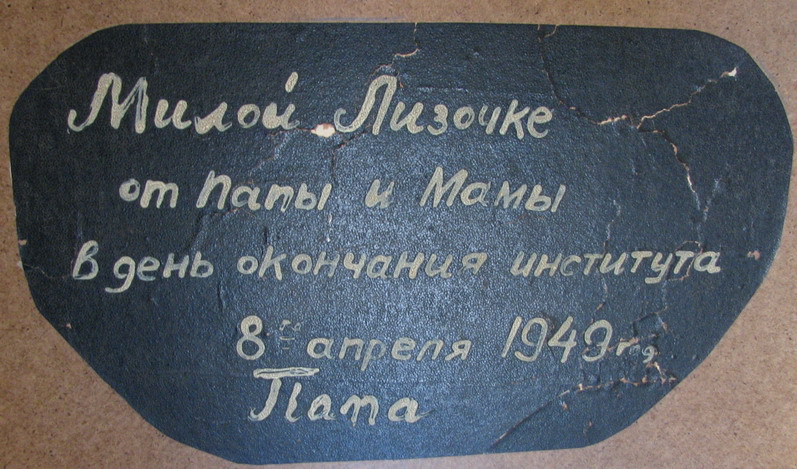 Милой Лизочке
от папы и Мамы
в день окончания института
8го апреля 1949 год
Папа